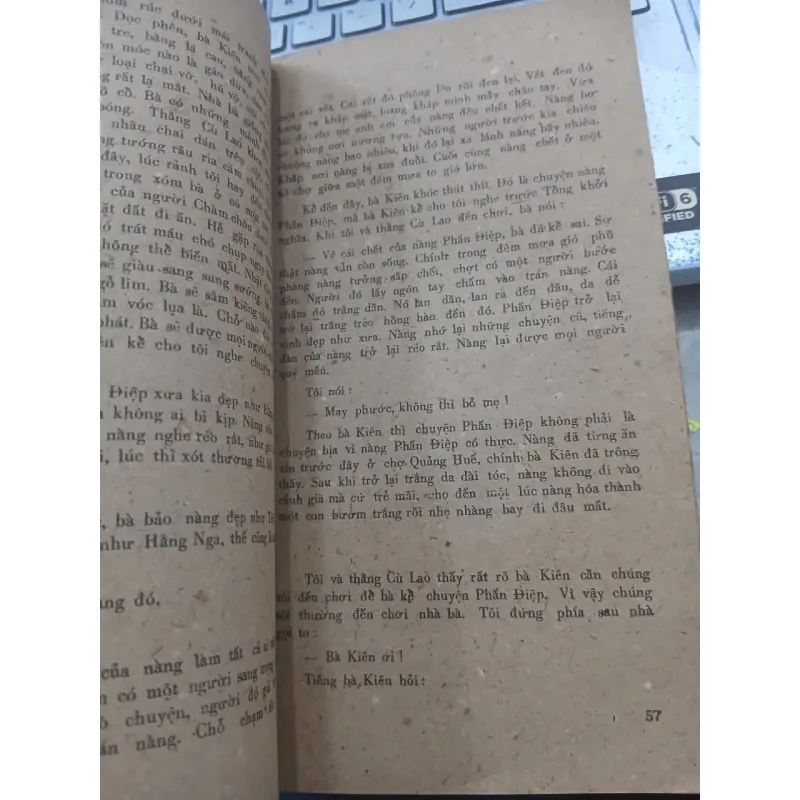 rúc dưới mái tranh
Dọc phên, bà Kiên
tre, bằng lá cau,
móc nào là gáo dừa
loại chai vỡ, hũ vỡ,
rất lạ mắt. Nhà bà
cỗ. Bà có những
bóng. Thằng Cù Lao
nhãn chai dán trên
tướng râu ria cầm
đây, lúc rảnh tôi hay
trong xóm bà ở có một
của người Chàm chôn
đất đi ăn. Hễ gặp
trát máu chó chụp ngay
không thể biến mất. Nhật
sẽ giàu sang sung sướng
gỗ lim. Bà sẽ sắm kiềng
vóc lụa là. Chỗ nào
phát. Bà sẽ được mọi người
kể cho tôi nghe chuyện
Điệp xưa kia đẹp như Hằng
không ai bì kịp. Nàng
nàng nghe réo rắt, như
lúc thì xót thương
bà bảo nàng đẹp như
như Hằng Nga, thế cũng
đó.
của nàng làm tất cả
có một người sang trọng
chuyện, người đó
nàng. Chỗ chạm
một cái vết. Cái vết đó phồng lên rồi đen lại. Vết đen đó
loang ra khắp mặt, loang khắp mình mẩy chân tay. Vừa
lúc đó cha mẹ anh em của nàng đều chết hết. Nàng bơ
vơ không nơi nương tựa. Những người trước kia chiều
chuộng nàng bao nhiêu, khi đó lại xa lánh nàng bấy nhiêu.
Khắp nơi nàng bị xua đuổi. Cuối cùng nàng chết ở một
xó chợ giữa một đêm mưa to gió lớn.
Kể đến đây, bà Kiên khóc thút thít. Đó là chuyện nàng
Phấn Điệp, mà bà Kiên kể cho tôi nghe trước Tổng khởi
nghĩa. Khi tôi và thằng Cù Lao đến chơi, bà nói :
— Về cái chết của nàng Phấn Điệp, bà đã kể sai. Sự
thật nàng vẫn còn sống. Chính trong đêm mưa gió phũ
phàng nàng tưởng sắp chết, chợt có một người bước
đến. Người đó lấy ngón tay chấm vào trán nàng. Cái
chấm đó trắng dần. Nó lan dần, lan ra đến đâu, da dẻ
trở lại trắng trẻo hồng hào đến đó. Phấn Điệp trở lại
xinh đẹp như xưa. Nàng nhớ lại những chuyện cũ, tiếng
đàn của nàng trở lại réo rắt. Nàng lại được mọi người
quý mến.
Tôi nói :
— May phước, không thì bỏ mẹ !
Theo bà Kiên thì chuyện Phấn Điệp không phải là
chuyện bịa vì nàng Phấn Điệp có thực. Nàng đã từng ăn
xin trước đây ở chợ Quảng Huế, chính bà Kiên đã trông
thấy. Sau khi trở lại trắng da dài tóc, nàng không đi vào
cảnh già mà cứ trẻ mãi, cho đến một lúc nàng hóa thành
một con bướm trắng rồi nhẹ nhàng bay đi đâu mất.
Tôi và thằng Cù Lao thấy rất rõ bà Kiên cần chúng
tôi đến chơi để bà kể chuyện Phấn Điệp. Vì vậy chúng
tôi thường đến chơi nhà bà. Tôi đứng phía sau nhà
gọi to :
— Bà Kiên ơi !
Tiếng bà Kiên hỏi :
57
6